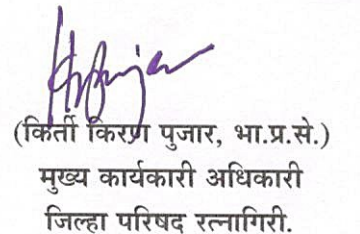 (किर्ती किरण पुजार, भा.प्र.से.)
मुख्य कार्यकारी अधिकारी
जिल्हा परिषद रत्नागिरी.